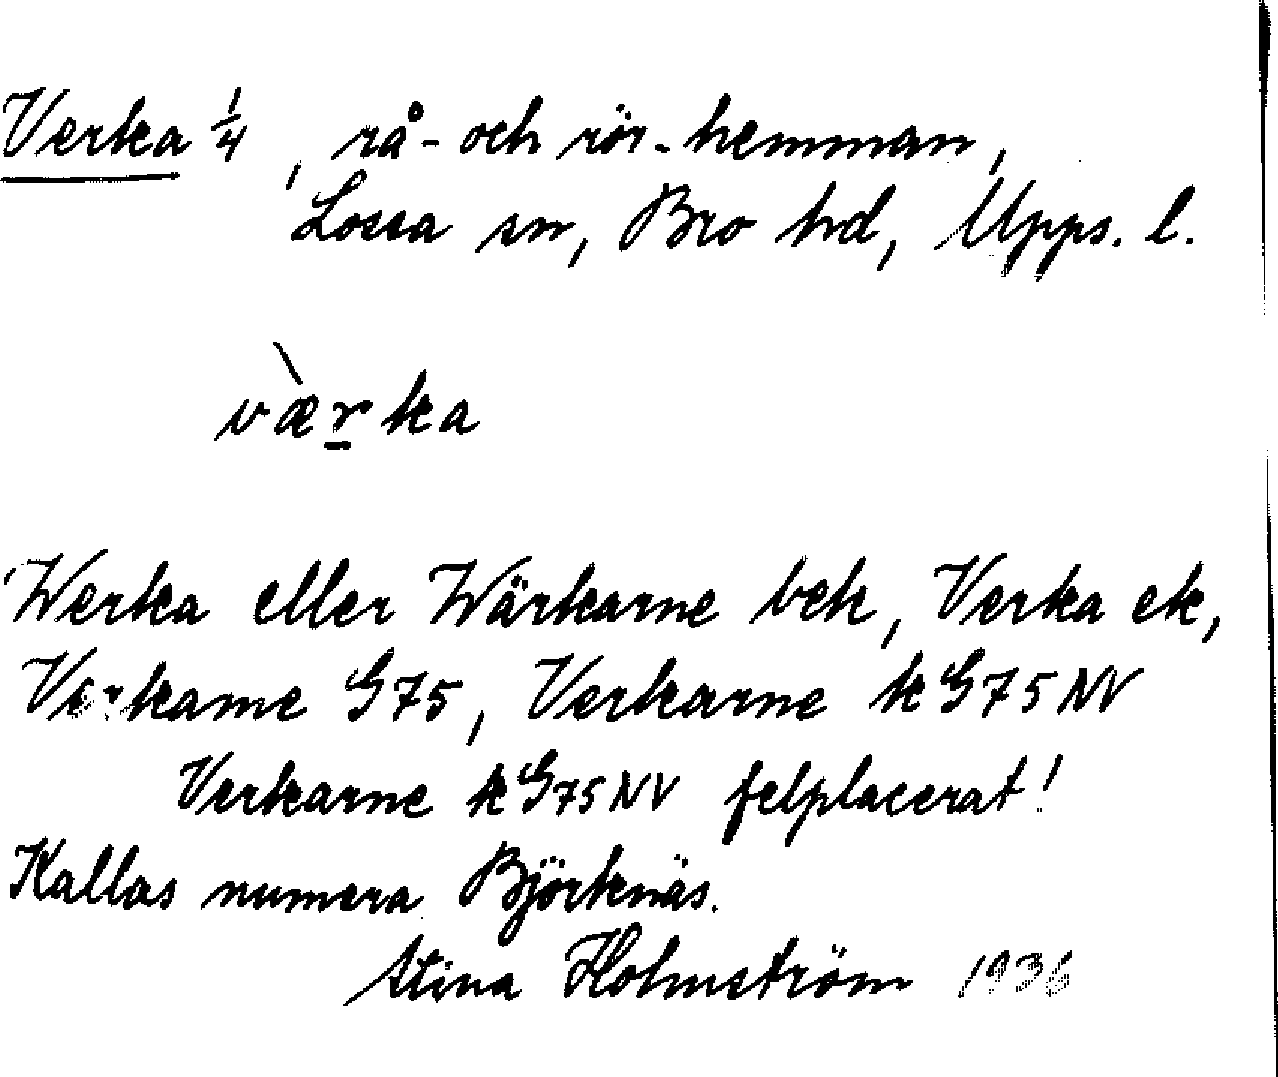 Verka 1/4, rå- och rör-hemman,
Lossa sn, Bro hd, Upps. l.
væ̀r̲ka
Werka eller Wärkarne bek, Verka ek,
Verkarne G75, Verkarne k G75 NV
Verkarne k G75 NV felplacerat!
Kallas numera Björknäs.
Stina Holmström 1936